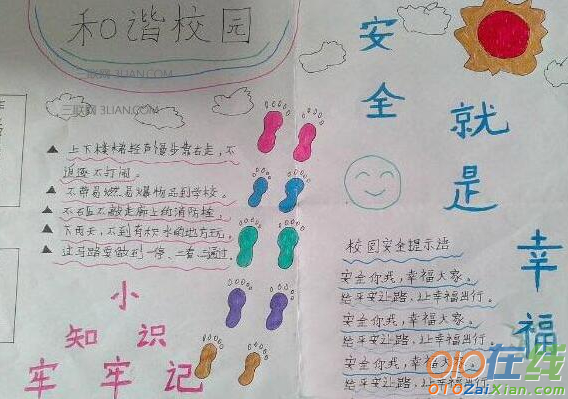 和谐校园
三联网 3LIAN.COM
三联网 3LIAN.COM
▲ 上下楼梯轻声慢步靠右走，不
追逐不打闹。
▲ 不带易燃易爆物品到学校。
▲ 不敲走廊上的消防栓。
▲ 下雨天，不到有积水的地方玩。
▲ 过马路要做到一停、二看、三通过。
小
知识
牢牢记
安全
就是
幸福
校园安全提示语
安全你我，幸福大家。
给平安让路，让幸福出行。
安全你我，幸福大家。
给平安让路，让幸福出行。
安全你我，幸福大家。
给平安让路，让幸福出行。
010在线
010ZaiXian.com